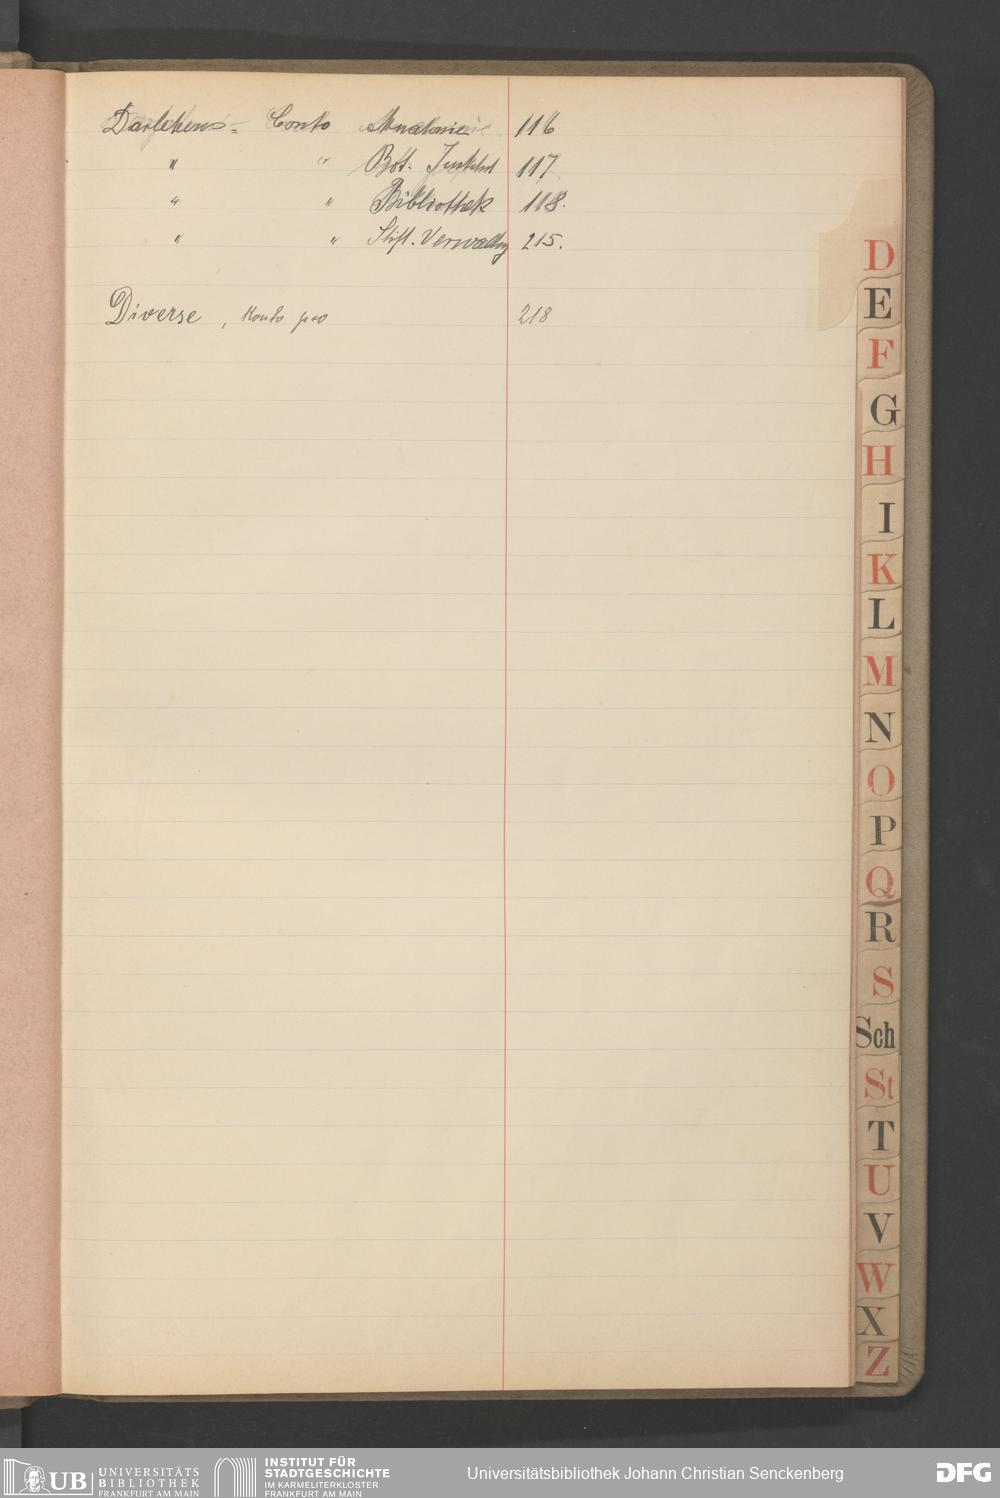 Darlehens- Conto Anatomie 116
" " Bot. Institut 117
" " Bibliothek 118.
" " Stift. Verwaltg 215.
Diverse, Konto pro 218
D
E
F
G
H
I
K
L
M
N
O
P
Q
R
S
Sch
St
T
U
V
W
X
Z
UB UNIVERSITÄTS BIBLIOTHEK FRANKFURT AM MAIN
INSTITUT FÜR STADTGESCHICHTE IM KARMELITERKLOSTER FRANKFURT AM MAIN
Universitätsbibliothek Johann Christian Senckenberg
DFG